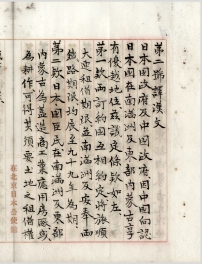 第二號譯漢文
日本國政府及中國政府因中國向認
日本國在南滿洲及東部內蒙古享
有優越地位茲議定條款如左
第一款兩訂約國互相約定將旅順
大連租借期限並南滿洲及安奉兩
鐵路期限均展至九十九年為期
第二款日本國臣民在南滿洲及東部
內蒙古為蓋造商工業應用房廠或
為耕作可得其須要土地之租借權
在北京日本公使館